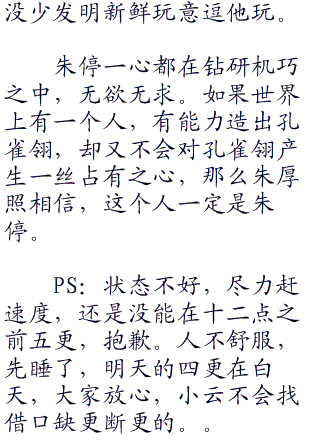 没少发明新鲜玩意逗他玩。
朱停一心都在钻研机巧
之中，无欲无求。如果世界
上有一个人，有能力造出孔
雀翎，却又不会对孔雀翎产
生一丝占有之心，那么朱厚
照相信，这个人一定是朱
停。
PS：状态不好，尽力赶
速度，还是没能在十二点之
前五更，抱歉。人不舒服，
先睡了，明天的四更在白
天，大家放心，小云不会找
借口缺更断更的。。